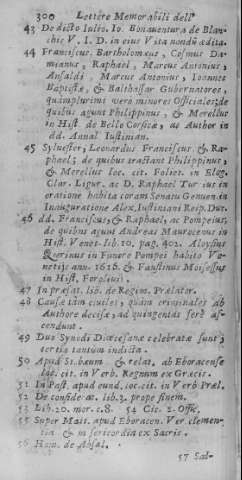 300 Lettere Memorabili dell'
43 De dicto Iulio. Io. Bonauentura de Blan-
chis V. I. D. in eius Vita nondū edita.
44 Franciscus Bartholomæus, Cosmus Da-
mianus, Raphael, Marcus Antonius,
Ansaldi, Marcus Antonius, Ioannes
Baptistæ, & Balthasar Gubernatores,
quamplurimi vero minores Officiales; de
quibus agunt Philippinus, & Merellus
in Hist. de Bello Corsicæ, ac Author in
dd. Annal Iustinian.
45 Syluester, Leonardus Franciscus, & Ra-
phael; de quibus tractant Philippinus,
& Merellus loc. cit. Foliet. in Elog.
Clar. Ligur. ac D. Raphael Tur ius in
oratione habita coram Senatu Genuen in
Inauguratione Alex, Iustiniani Reip. Dur.
46 dd. Franciscus, & Raphael, ac Pompeius,
de quibus agunt Andreas Maurocenus in
Hist. Venet. lib. 10. pag. 402. Aloysius
in Funere Pompei habito Ve-
netijs ann. 1616. & Faustinus Moisessus
in Hist. Foroliuij.
47 In præfat. lib. de Regim. Prælator.
48 Causæ tàm ciuiles, quàm criminales ab
Authore decisæ, ad quingentas ferè as-
cendunt.
49 Duo Synodi Diœcesanæ celebratæ sunt;
tertio tantum indicta.
50 Apud Stobæum & relat. ab Eboracense
loc. cit. in Verb. Regnum ex Græcis.
51 In Past. apud eund. loc. cit. in Verb Præl.
52 De conside ac. lib. 3. prope finem.
53 Lib. 20. mor. c. 8. 54 Cic. 2. Offic.
55 Super Matt. apud Eboracen. Ver. clemen-
tia & misericordia ex Sacris.
56 Hom. de Absal.
57 Sal-